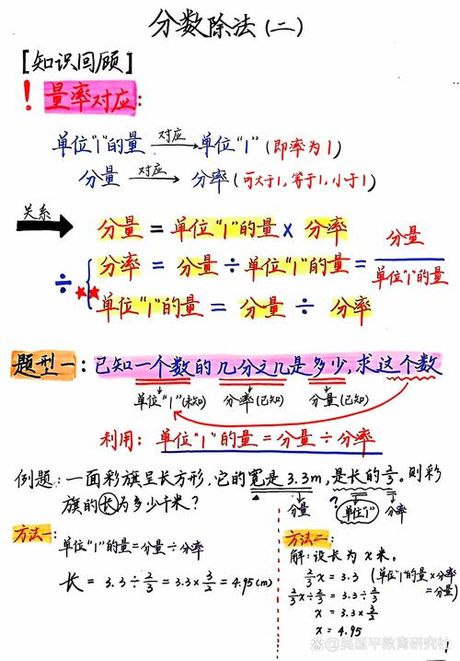 分数除法(二)
[知识回顾]
! 量率对应:
单位"1"的量 对应→ 单位"1"(即率为1)
分量 对应→ 分率(可大于1,等于1,小于1)
关系→ 分量=单位"1"的量×分率
÷ { 分率=分量÷单位"1"的量=分量/单位"1"的量
★★ 单位"1"的量=分量÷分率
题型一:已知一个数的几分之几是多少,求这个数
单位"1"(未知) 分率(已知) 分量(已知)
利用:单位"1"的量=分量÷分率
例题:一面彩旗呈长方形,它的宽是3.3m,是长的2/3。则彩
旗的长为多少千米?
分量 ? 单位"1" 分率
方法一:
单位"1"的量=分量÷分率
长=3.3÷2/3=3.3×3/2=4.95(m)
方法二:
解:设长为x米。
2/3x=3.3 (单位"1"的量×分率
=分量)
2/3x÷2/3=3.3÷2/3
x=3.3×3/2
x=4.95
1